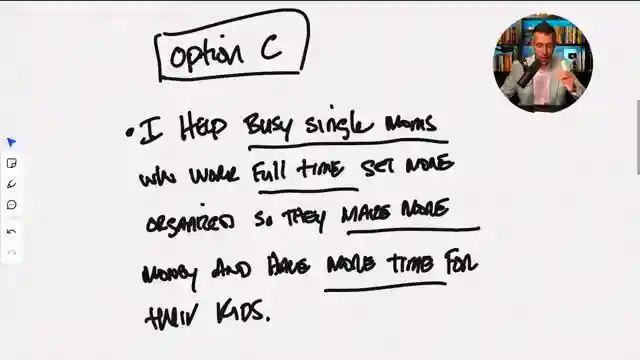 Option C
• I HELP BUSY SINGLE MOMS
WHO WORK FULL TIME GET MORE
ORGANIZED SO THEY MAKE MORE
MONEY AND HAVE MORE TIME FOR
THEIR KIDS.